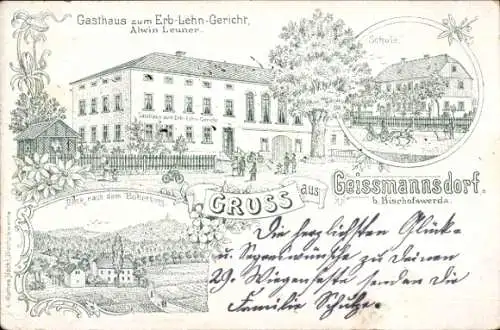 Gasthaus zum Erb-Lehn-Gericht,
Alwin Leuner.
Schule.
Gasthaus zum Erb-Lehn-Gericht
GRUSS aus Geissmannsdorf.
b. Bischofswerda.
Blick nach dem Butterberg.
Die herzlichsten Glück-
u. Segenwünsche zu Deinem
29. Wiegenfeste senden die
Familie Schulze.